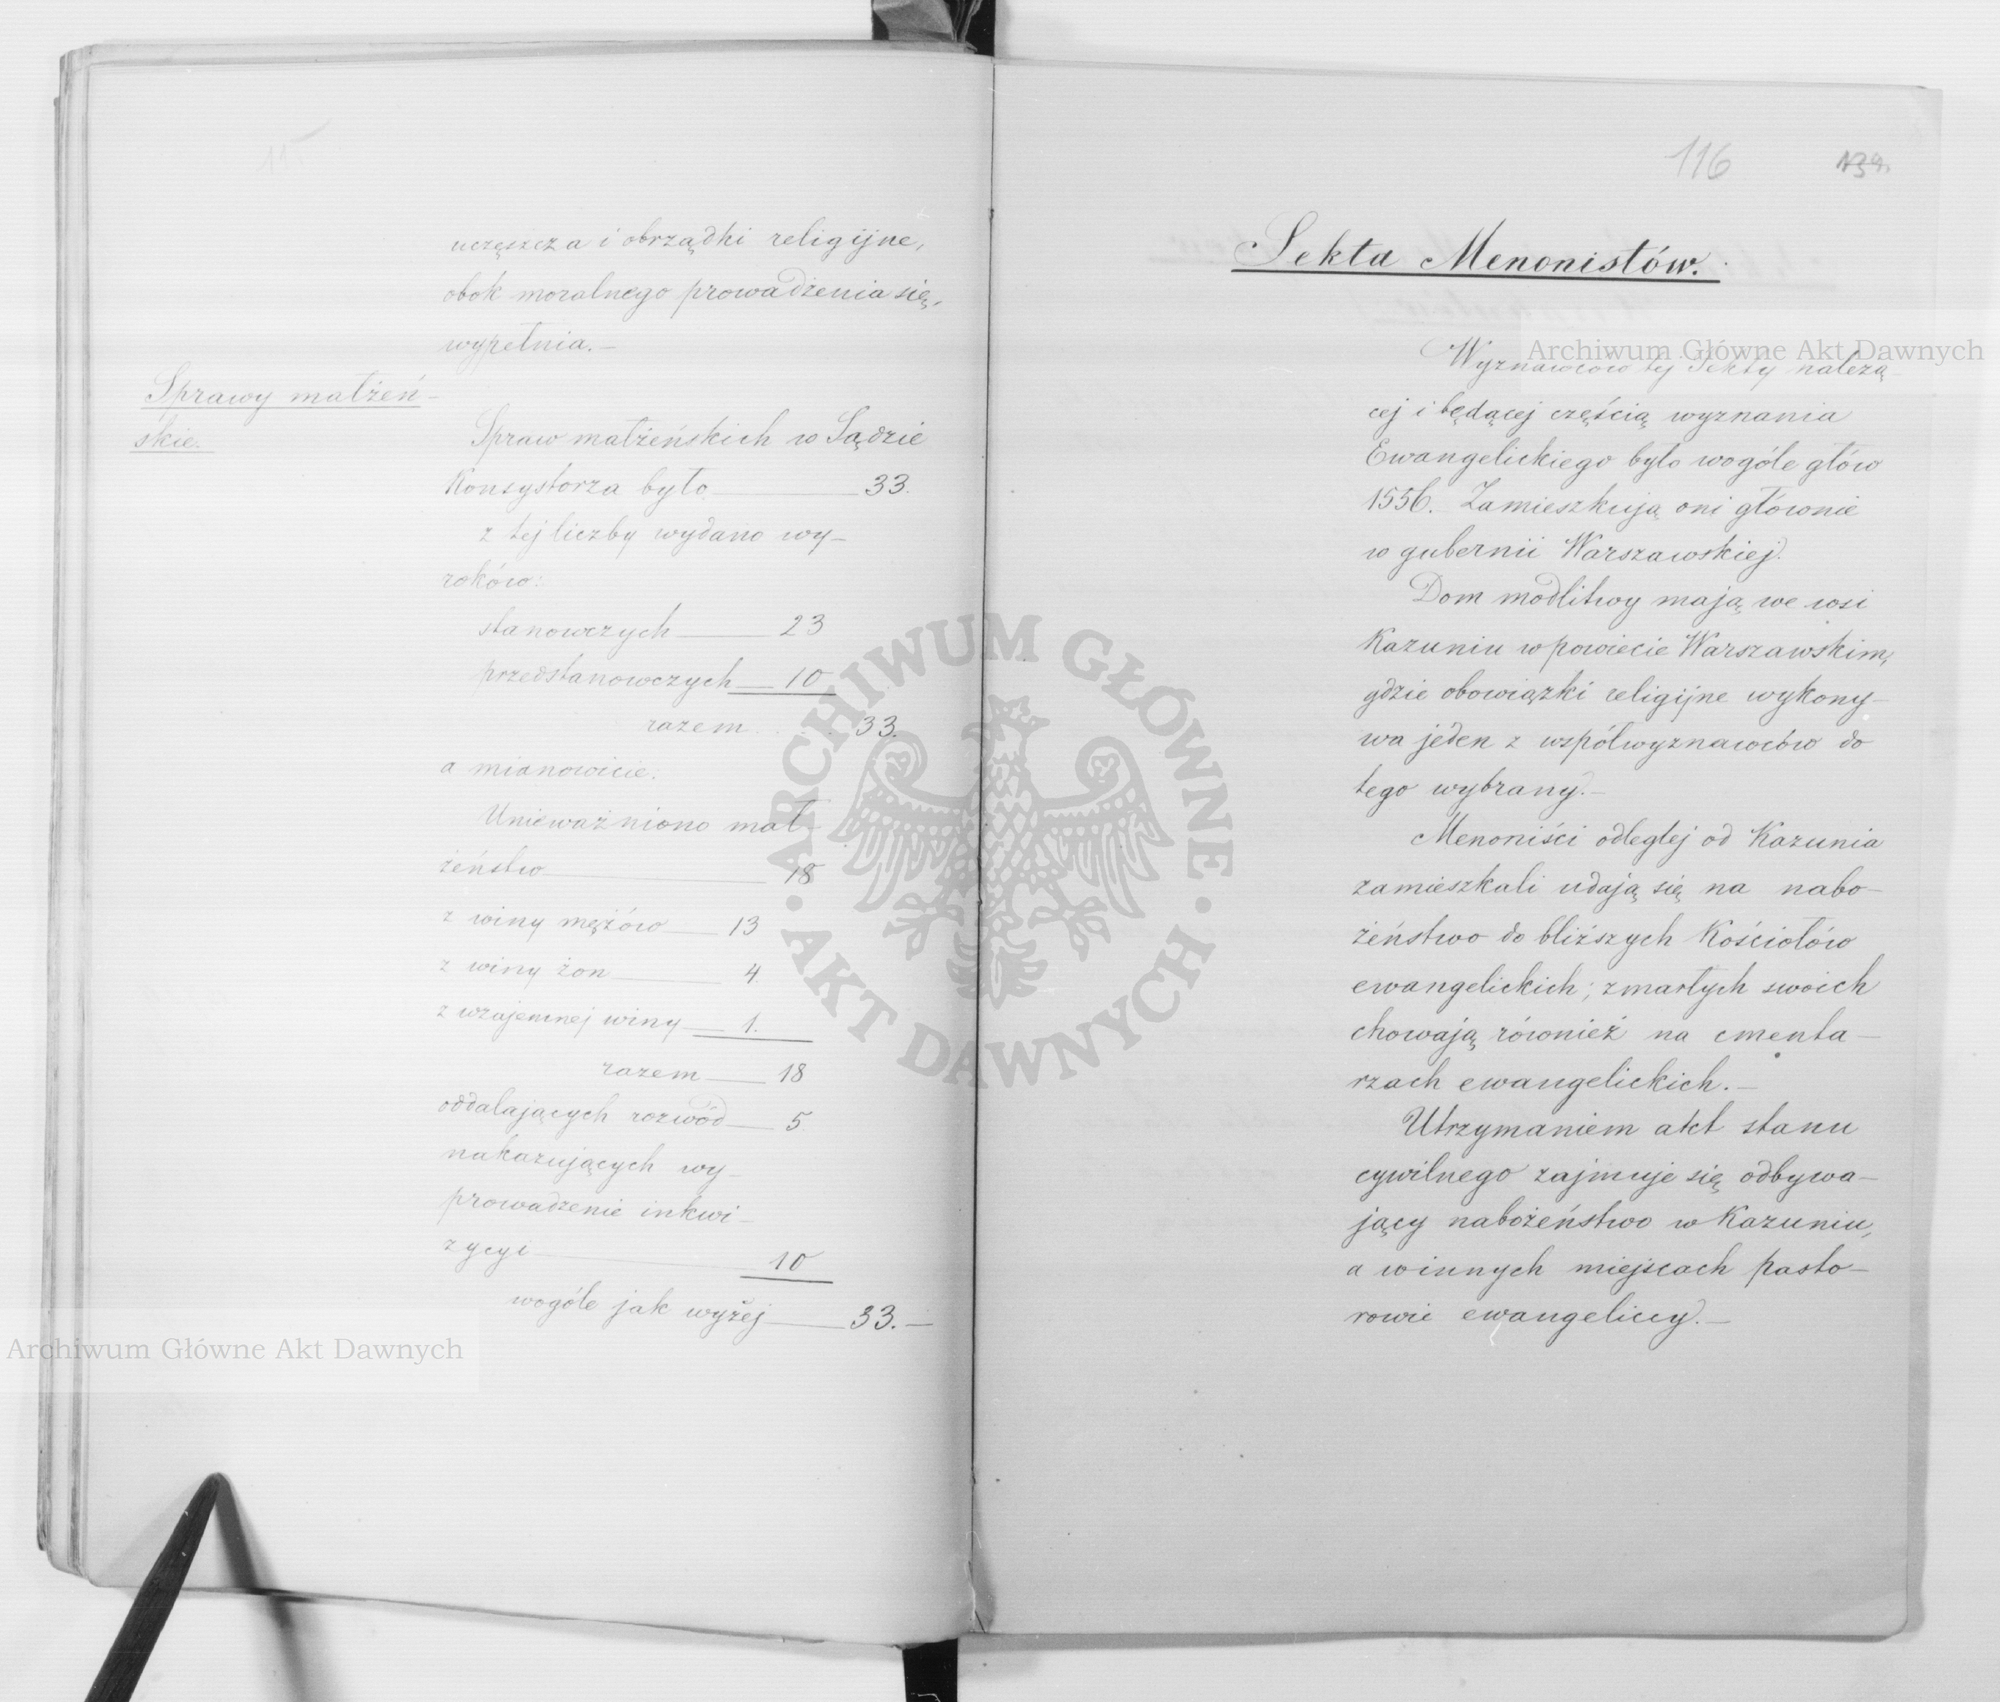 115
uczęszcza i obrządki religijne,
obok moralnego prowadzenia się,
wypełnia.—
Sprawy małżeń-
skie.
Spraw małżeńskich w Sądzie
Konsystorza było — 33.
z tej liczby wydano wy-
roków:
stanowczych — 23
przedstanowczych — 10
razem . . . 33.
a mianowicie:
Unieważniono mał-
żeństw — 18
z winy mężów — 13
z winy żon — 4.
z wzajemnej winy — 1.
razem — 18
oddalających rozwód — 5
nakazujących wy-
prowadzenie inkwi-
zycyi — 10
wogóle jak wyżej — 33.—
116
139.
Sekta Menonistów.
Wyznawców tej Sekty należą-
cej i będącej częścią wyznania
Ewangelickiego było wogóle głów
1556. Zamieszkują oni głównie
w gubernii Warszawskiej.
Dom modlitwy mają we wsi
Kazuniu w powiecie Warszawskim,
gdzie obowiązki religijne wykony-
wa jeden z współwyznawców do
tego wybrany.—
Menoniści odległej od Kazunia
zamieszkali udają się na nabo-
żeństwo do bliższych Kościołów
ewangelickich; zmarłych swoich
chowają również na cmenta-
rzach ewangelickich.—
Utrzymaniem akt stanu
cywilnego zajmuje się odbywa-
jący nabożeństwo w Kazuniu,
a w innych miejscach pasto-
rowie ewangeliccy.—
Archiwum Główne Akt Dawnych
Archiwum Główne Akt Dawnych
ARCHIWUM GŁÓWNE
· AKT DAWNYCH ·